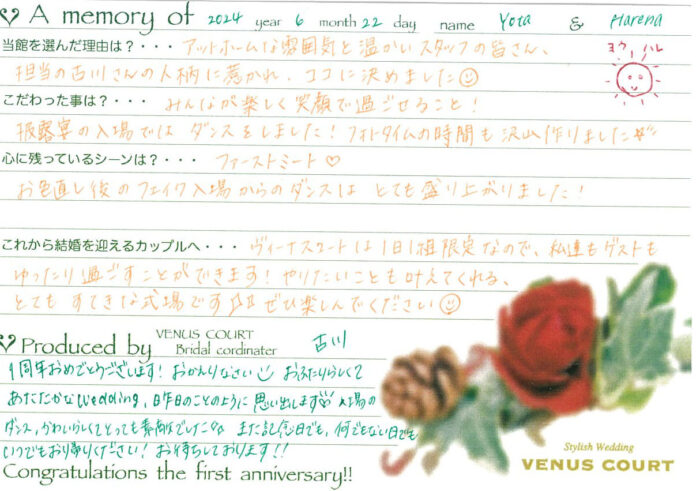 A memory of 2024 year 6 month 22 day name Yota & Harena
当館を選んだ理由は？・・・ アットホームな雰囲気と温かいスタッフの皆さん、
ヨウ ハレ
担当の古川さんの人柄に惹かれ、ココに決めました
こだわった事は？・・・ みんなが楽しく笑顔で過ごせること！
披露宴の入場では ダンスをしました！フォトタイムの時間も 沢山作りました
心に残っているシーンは？・・・ ファーストミート♡
お色直し後のフェイク入場からのダンスは とても盛り上がりました！
これから結婚を迎えるカップルへ・・・ ヴィーナスコートは1日1組限定なので、私達もゲストも
ゆったり過ごすことができます！やりたいことも叶えてくれる、
とても すてきな式場です♪♪ ぜひ楽しんでください
Produced by VENUS COURT Bridal cordinater 古川
1周年おめでとうございます！おかえりなさい おふたりらしくて
あたたかなWedding、昨日のことのように思い出します 入場の
ダンス、かわいらしくてとっても素敵でした また記念日でも、何でもない日でも
いつでもお帰りください！お待ちしております!!
Congratulations the first anniversary!!
Stylish Wedding
VENUS COURT